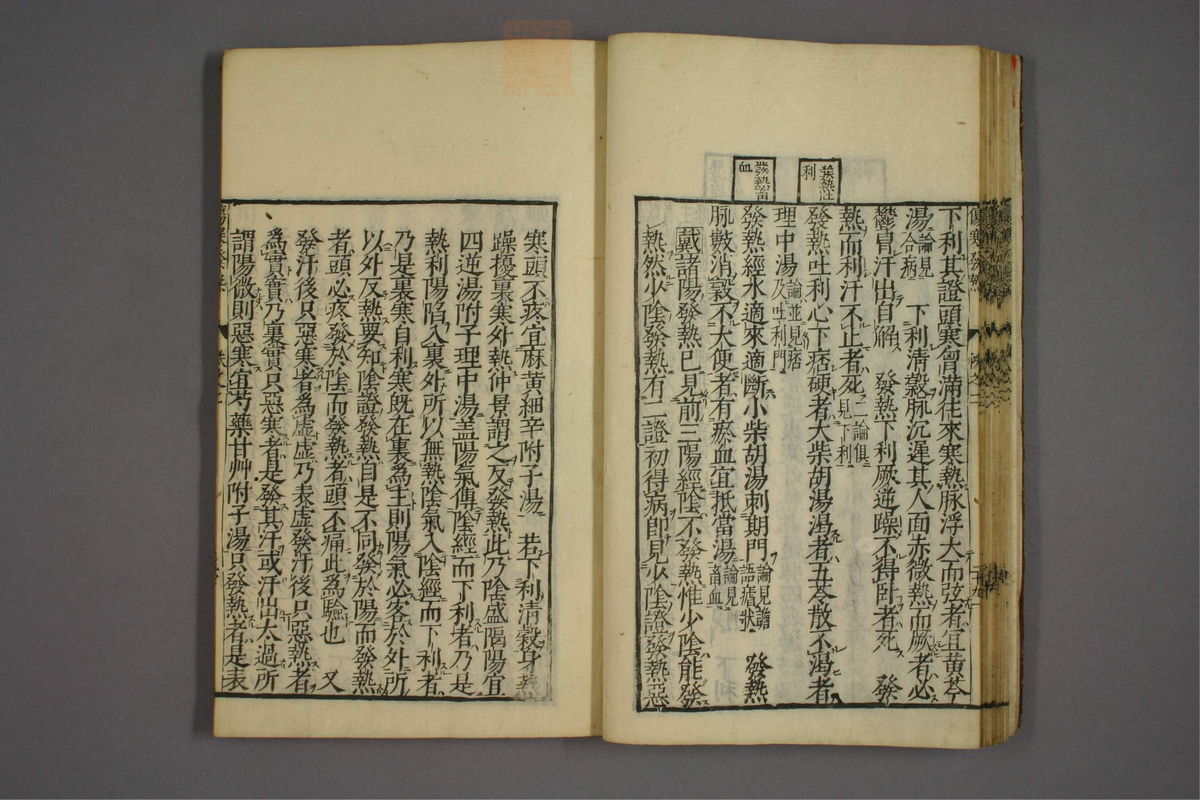 發熱吐利
發熱畜血
下利其證頭寒胷滿往來寒熱脉浮大而弦者宜黃芩
湯論見合病 下利清穀脉沉遲其人面赤微熱而厥者必
鬱冒汗出自解 發熱下利厥逆躁不得卧者死 發
熱而利汗不止者死二論俱見下利
發熱吐利心下痞硬者大柴胡湯渴者五苓散不渴者
理中湯論並見痞及吐利門
發熱經水適來適斷小柴胡湯刺期門論見譫語㾗狀 發熱
脉數消穀不大便者有瘀血宜抵當湯論見畜血
戴諸陽發熱已見前三陽經陰不發熱惟少陰能發
熱然少陰發熱有二證初得病即見少陰證發熱惡
寒頭不疼宜麻黃細辛附子湯 若下利清穀身熱
躁擾裏寒外熱仲景謂之反發熱此乃陰盛隔陽宜
四逆湯附子理中湯蓋陽氣傳陰經而下利者乃是
熱利陽陷入裏外所以無熱陰氣入陰經而下利者
乃是裏寒自利寒既在裏爲主則陽氣必客於外所
以外反熱要知陰證發熱自是不同發於陽而發熱
者頭必疼發於陰而發熱者頭不痛此爲驗也 又
發汗後只惡寒者爲虛虛乃表虛發汗後只惡熱者
爲實實乃裏實只惡寒者是發其汗或汗出太過所
謂陽微則惡寒宜芍藥甘艸附子湯只發熱者是表